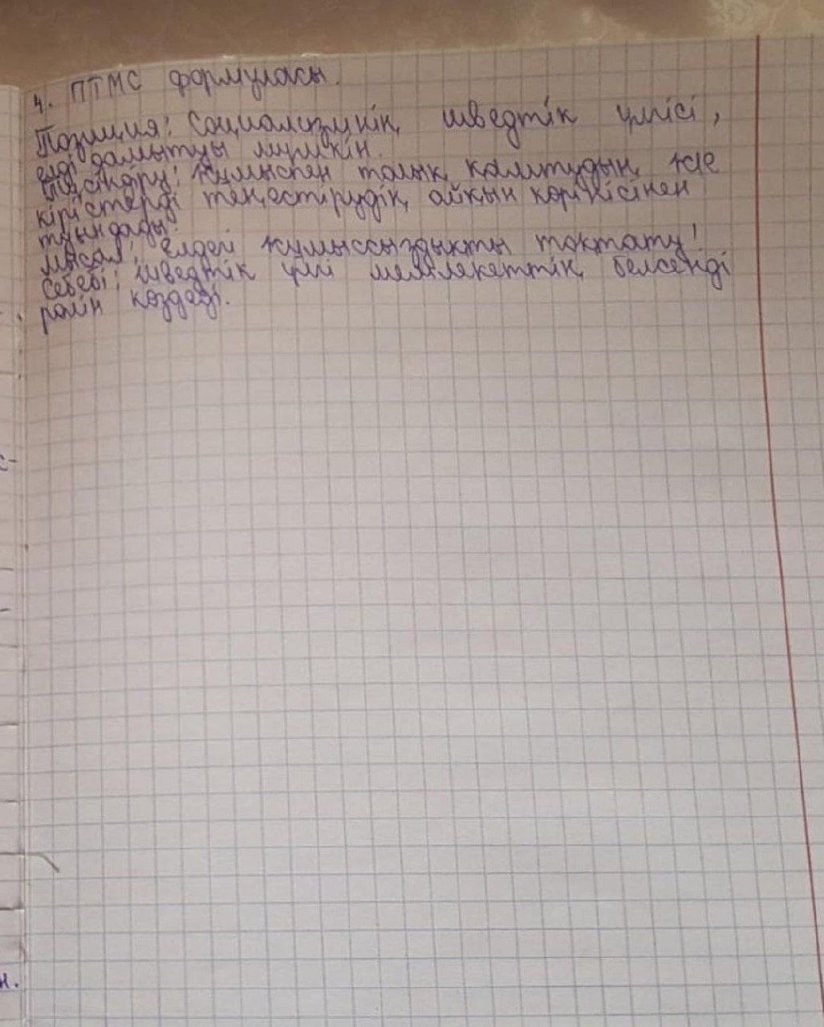 4. ПТМС формуласы.
Позиция: Социализмнің шведтік үлгісі,
елді дамытуы мүмкін.
Түсіндіру: Жұмыспен толық қамтудың және
кірістерді теңестірудің айқын көрінісінен
туындады.
Мысал: елдегі жұмыссыздықты тоқтату!
Себебі: шведтік үлгі мемлекеттің белсенді
рөлін көздеді.
н.